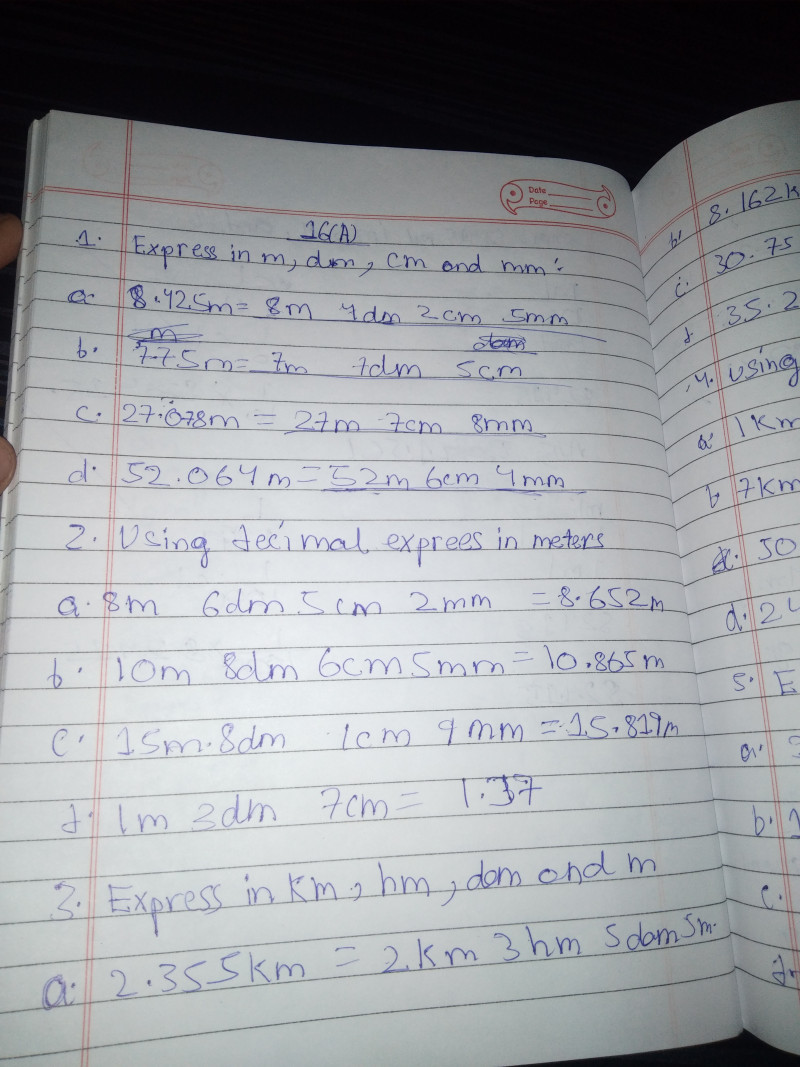 Date
Page
16(A)
1. Express in m, dm, cm and mm:
a. 8.425m = 8m 4dm 2cm 5mm
b. 7.75m = 7m 7dm 5cm
c. 27.078m = 27m 7cm 8mm
d. 52.064m = 52m 6cm 4mm
2. Using decimal exprees in meters
a. 8m 6dm 5cm 2mm = 8.652m
b. 10m 8dm 6cm 5mm = 10.865m
c. 15m 8dm 1cm 9mm = 15.819m
d. 1m 3dm 7cm = 1.37
3. Express in Km, hm, dam and m
a. 2.355km = 2km 3hm 5dam 5m.
b. 8.162k
c. 30.75
d. 35.2
4. Using
a. 1Km
b. 7Km
c. 50
d. 24
5. E
a.
b. 1
c.
d.